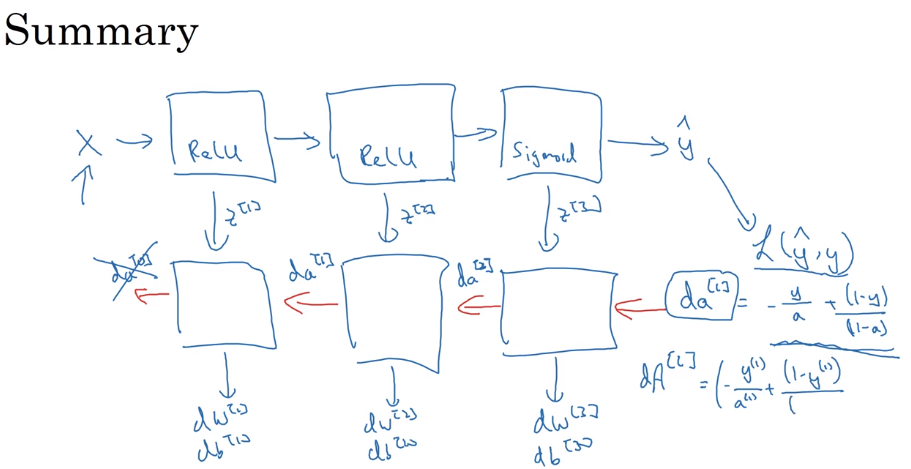 Summary
X → ReLU → ReLU → Sigmoid → ŷ
z^[1] z^[2] z^[3]
L(ŷ, y)
da^[0] da^[1] da^[2] da^[L] = - y/a + (1-y)/(1-a)
dA^[L] = (- y^(1)/a^(1) + (1-y^(1))/(
dw^[1] dw^[2] dw^[3]
db^[1] db^[3]